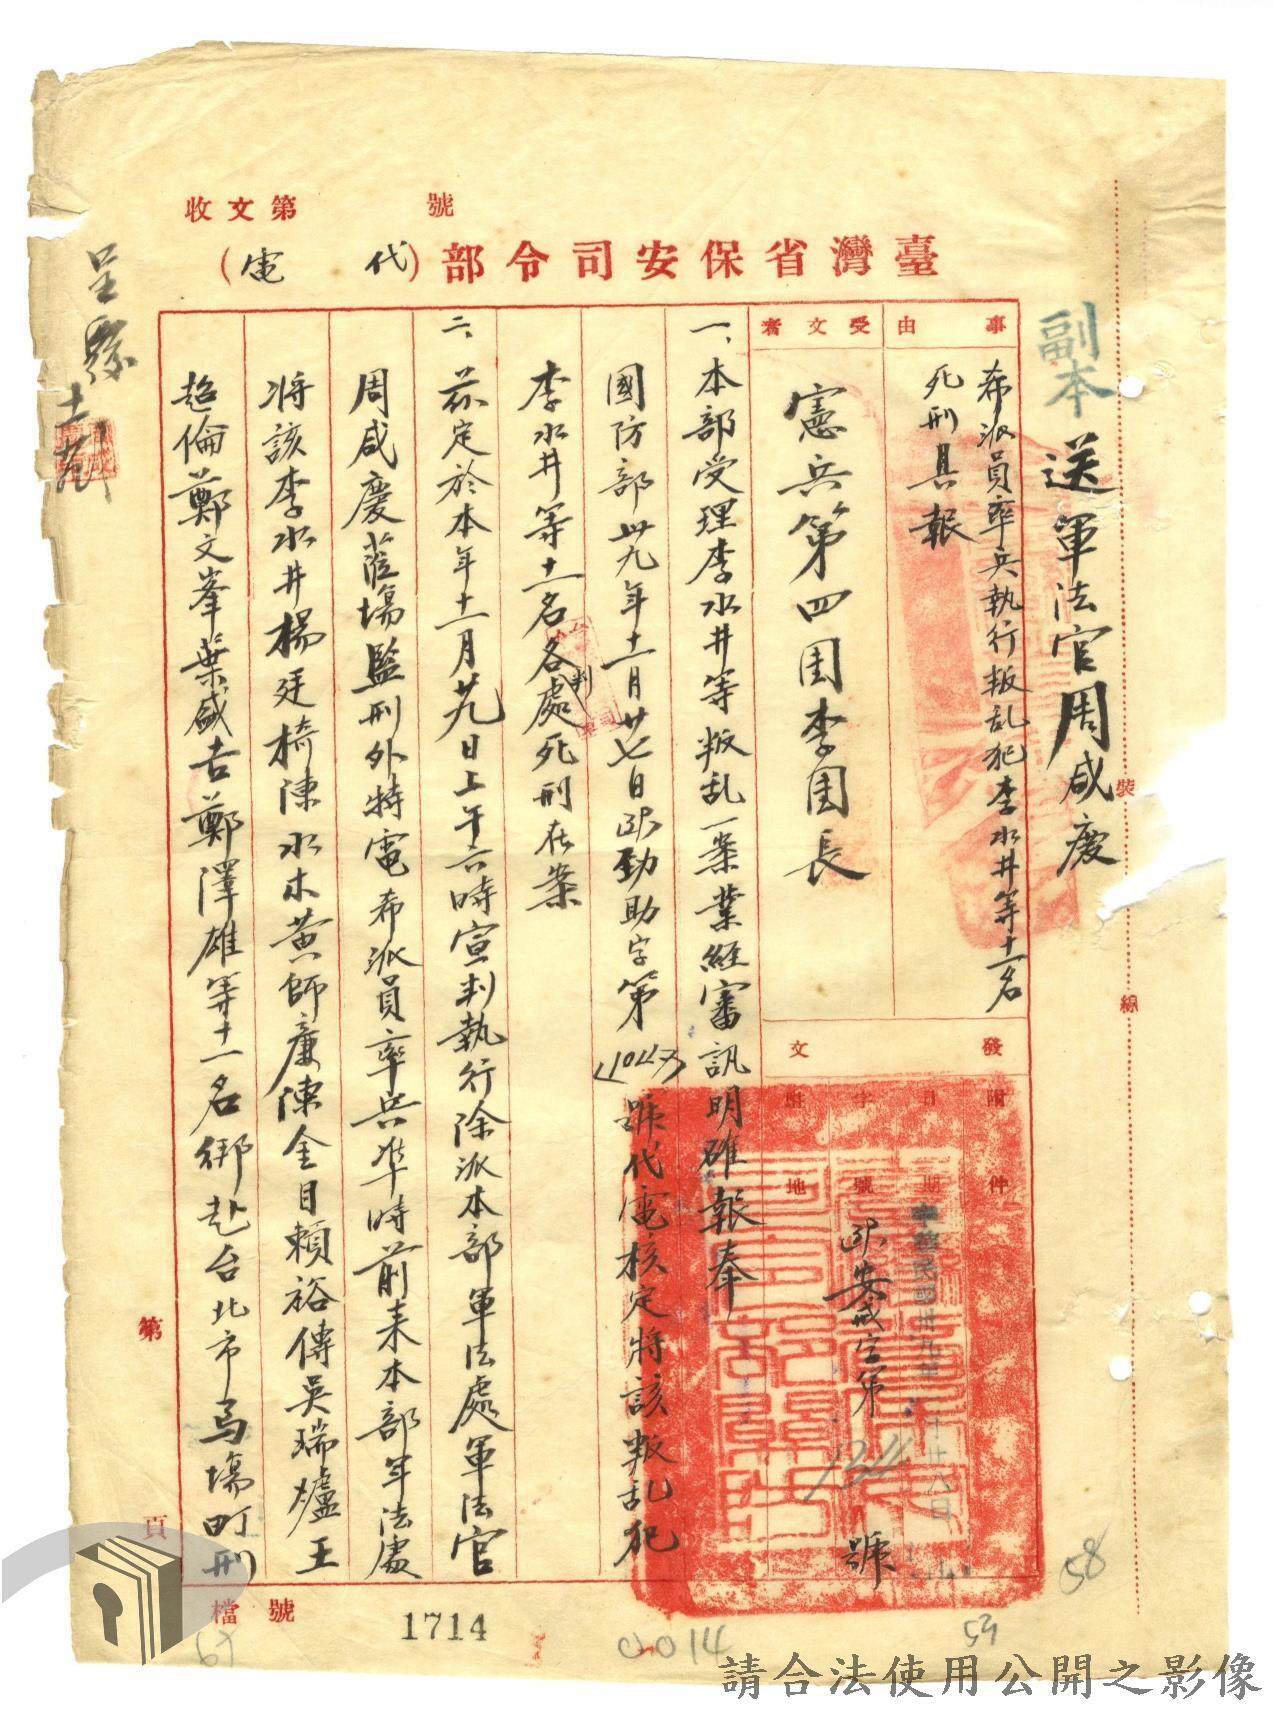 收文第　　號
臺灣省保安司令部（代電）
副本
送軍法官周咸慶
事由
希派員率兵執行叛乱犯李水井等十一名
死刑具報
受文者
憲兵第四團李團長
發文
附件
日期
中華民國卅九年十一月廿八日
字號
安咸字第　　號
駐地
一、本部受理李水井等叛乱一案業經審訊明確報奉
國防部卅九年十一月廿七日勁助字第　　號代電核定將該叛乱犯
李水井等十一名各處死刑在案
判
二、茲定於本年十一月廿九日上午六時宣判執行除派本部軍法處軍法官
周咸慶蒞場監刑外特電希派員率兵準時前来本部軍法處
將該李水井楊廷椅陳水木黃師廉陳金目賴裕傳吳瑞爐王
超倫鄭文峯葉盛吉鄭澤雄等十一名綁赴台北市馬場町刑
呈
裝
線
第
頁
檔號
1714
0014
53
58
請合法使用公開之影像